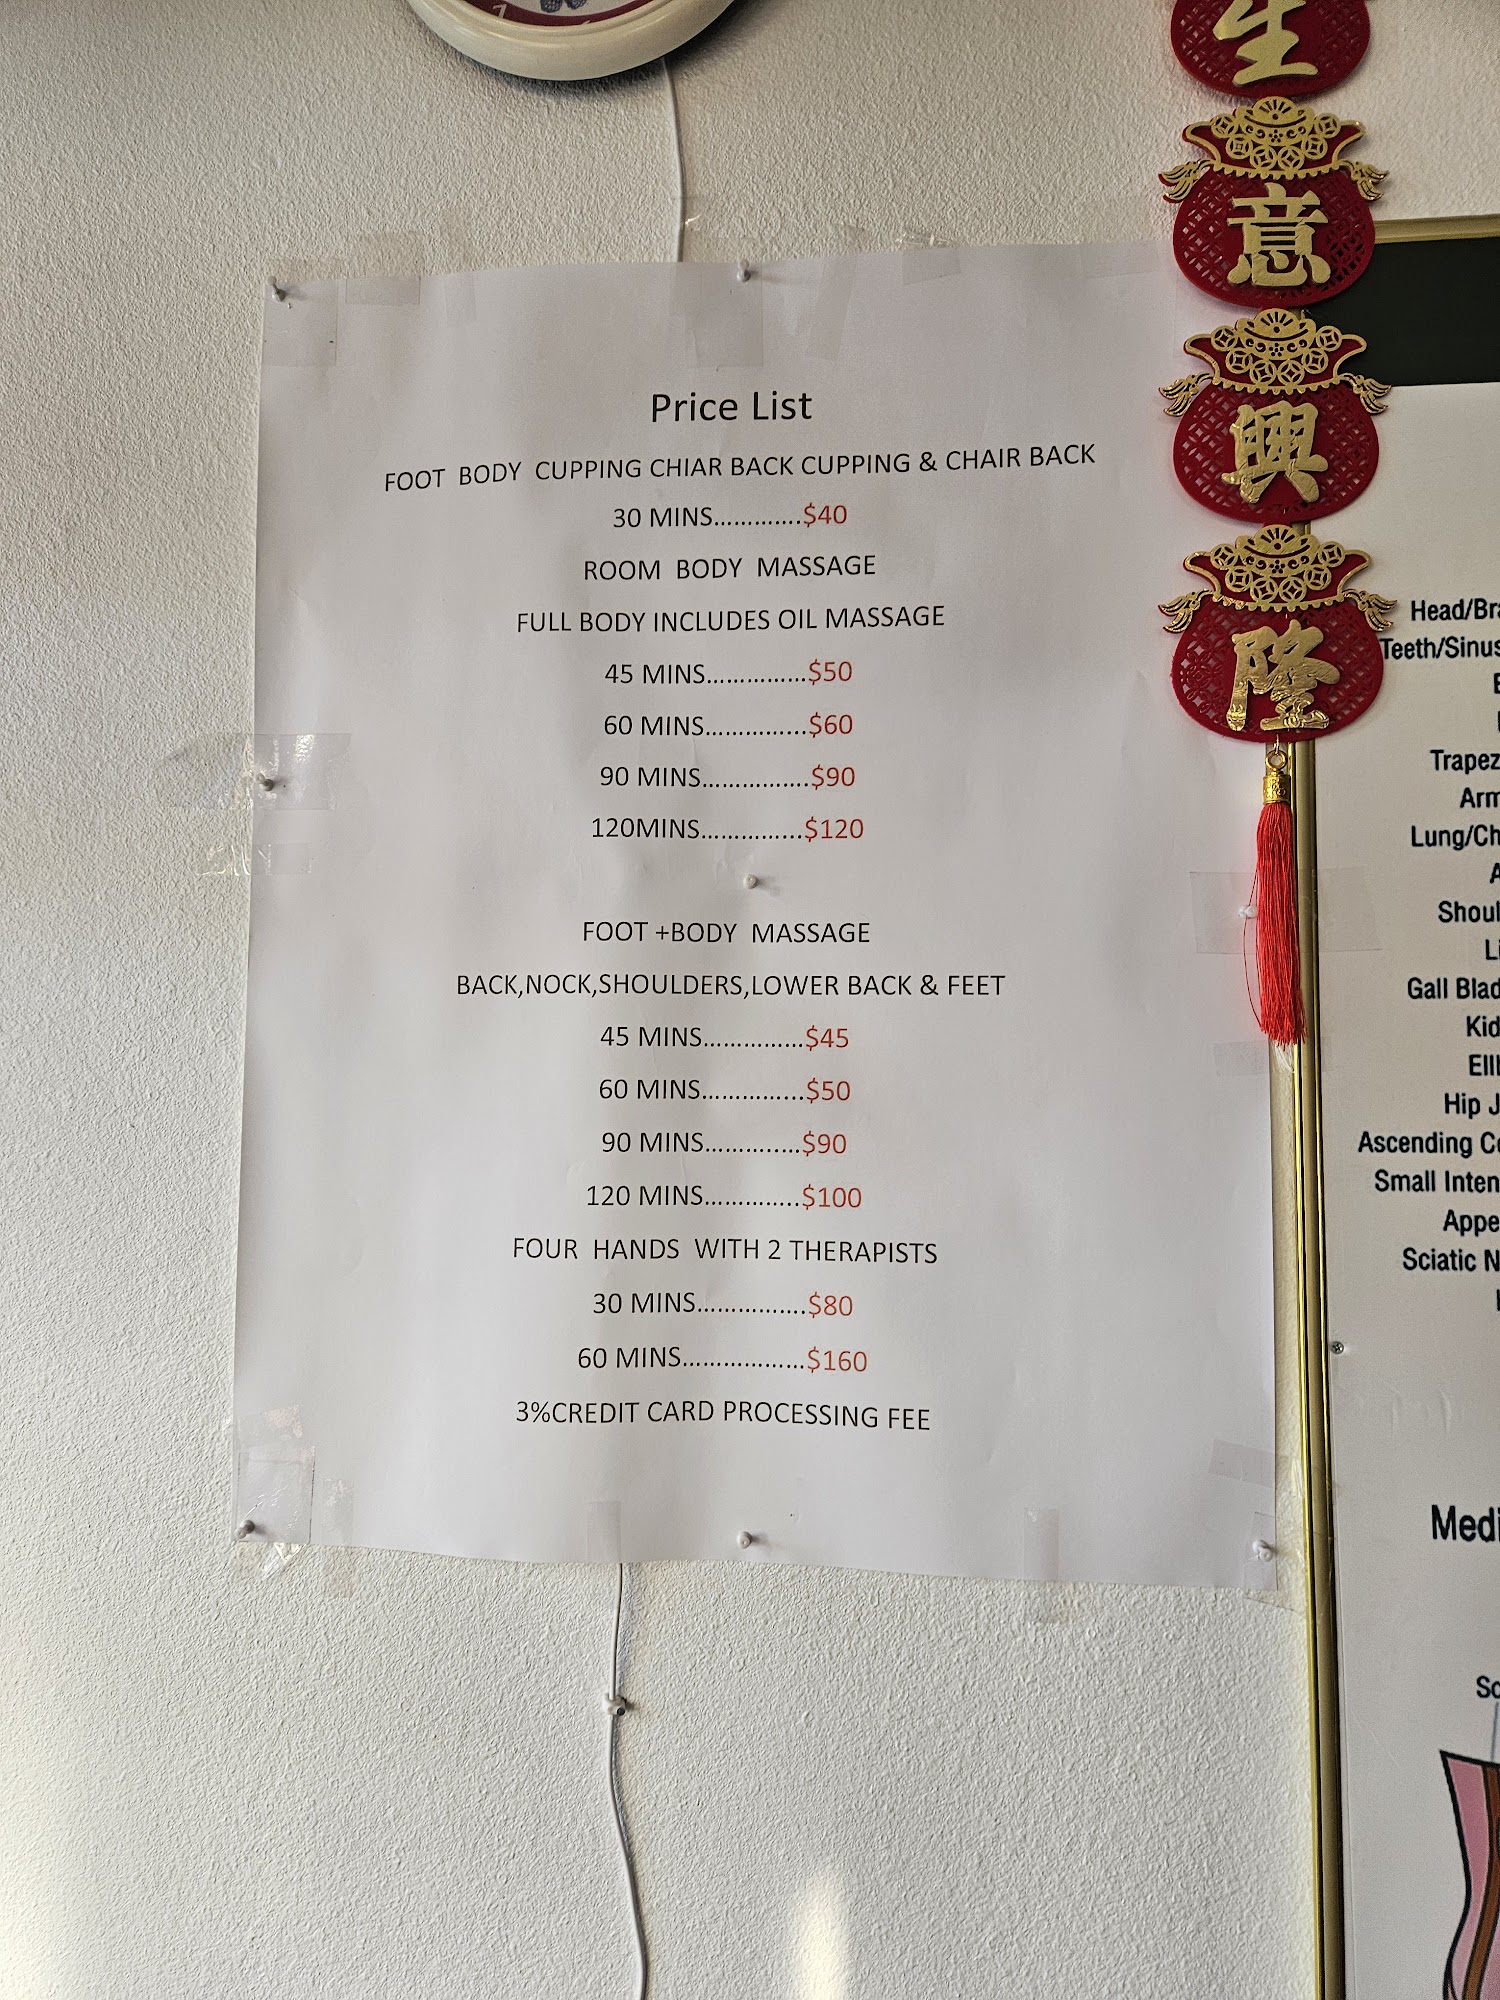 Price List
FOOT BODY CUPPING CHIAR BACK CUPPING & CHAIR BACK
30 MINS.............$40
ROOM BODY MASSAGE
FULL BODY INCLUDES OIL MASSAGE
45 MINS...............$50
60 MINS...............$60
90 MINS................$90
120MINS...............$120
FOOT +BODY MASSAGE
BACK,NOCK,SHOULDERS,LOWER BACK & FEET
45 MINS...............$45
60 MINS...............$50
90 MINS..............$90
120 MINS..............$100
FOUR HANDS WITH 2 THERAPISTS
30 MINS................$80
60 MINS..................$160
3%CREDIT CARD PROCESSING FEE
生
意
興
隆
Head/Bra
Teeth/Sinus
Trapez
Arm
Lung/Ch
Shoul
Gall Blad
Kid
Hip J
Ascending Co
Small Inten
Appe
Sciatic N
Medi